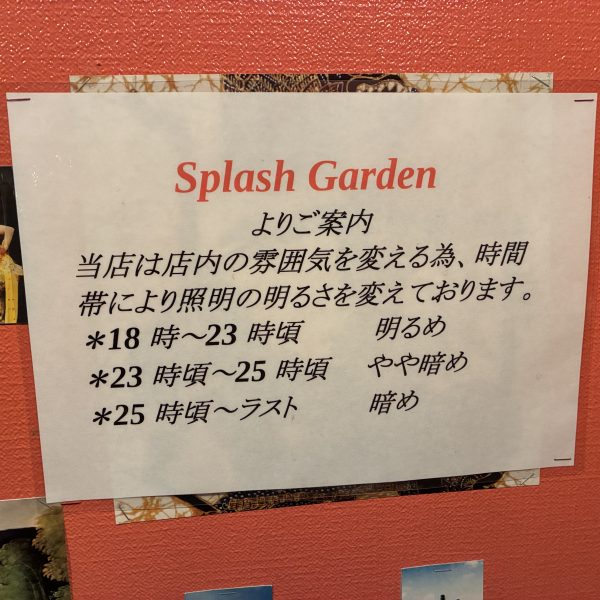 Splash Garden
よりご案内
当店は店内の雰囲気を変える為、時間
帯により照明の明るさを変えております。
＊18 時～23 時頃 明るめ
＊23 時頃～25 時頃 やや暗め
＊25 時頃～ラスト 暗め